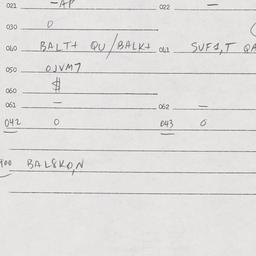 021 -AP 022 -
030 0
040 BALT+ QU/BALK+ 041 SUF1,T QA
050 OJVM7
060 $
061 - 062 -
042 0 043 0
900 BAL8KO,N